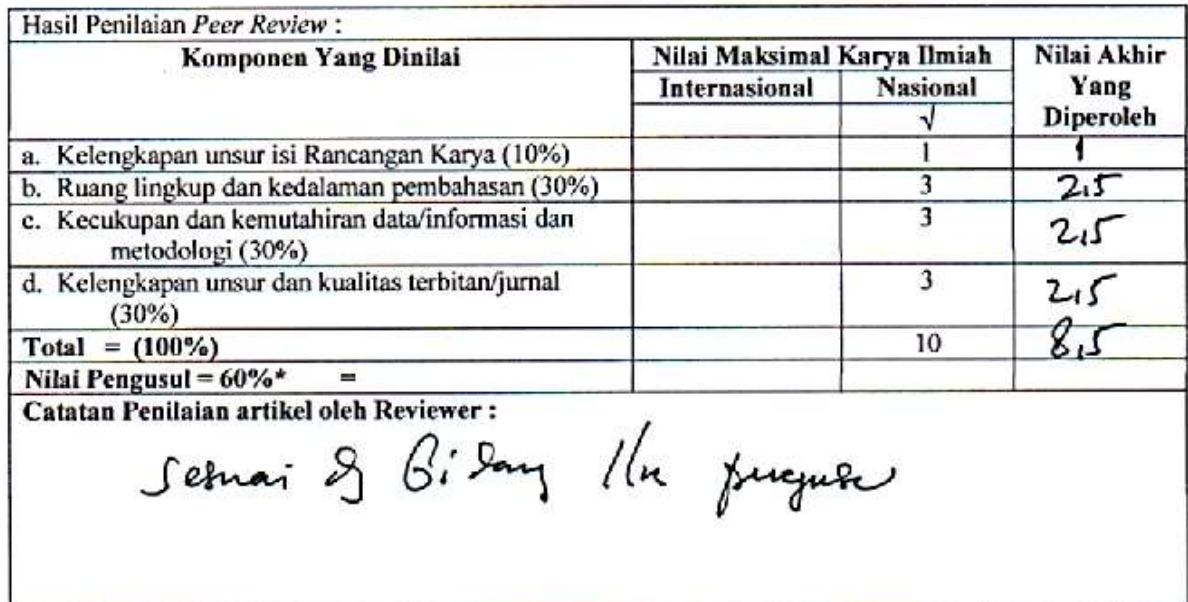 Hasil Penilaian Peer Review :
Komponen Yang Dinilai Nilai Maksimal Karya Ilmiah Nilai Akhir Yang Diperoleh
Internasional Nasional
√
a. Kelengkapan unsur isi Rancangan Karya (10%) 1 1
b. Ruang lingkup dan kedalaman pembahasan (30%) 3 2,5
c. Kecukupan dan kemutahiran data/informasi dan 3 2,5
metodologi (30%)
d. Kelengkapan unsur dan kualitas terbitan/jurnal 3 2,5
(30%)
Total = (100%) 10 8,5
Nilai Pengusul = 60%* =
Catatan Penilaian artikel oleh Reviewer :
Sesuai dg Bidang Ilm pengusul